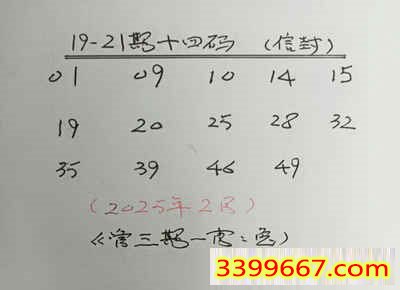 19-21期十四码 (信封)
01 09 10 14 15
19 20 25 28 32
35 39 46 49
(2025年2月)
《管三期一
3399667.com